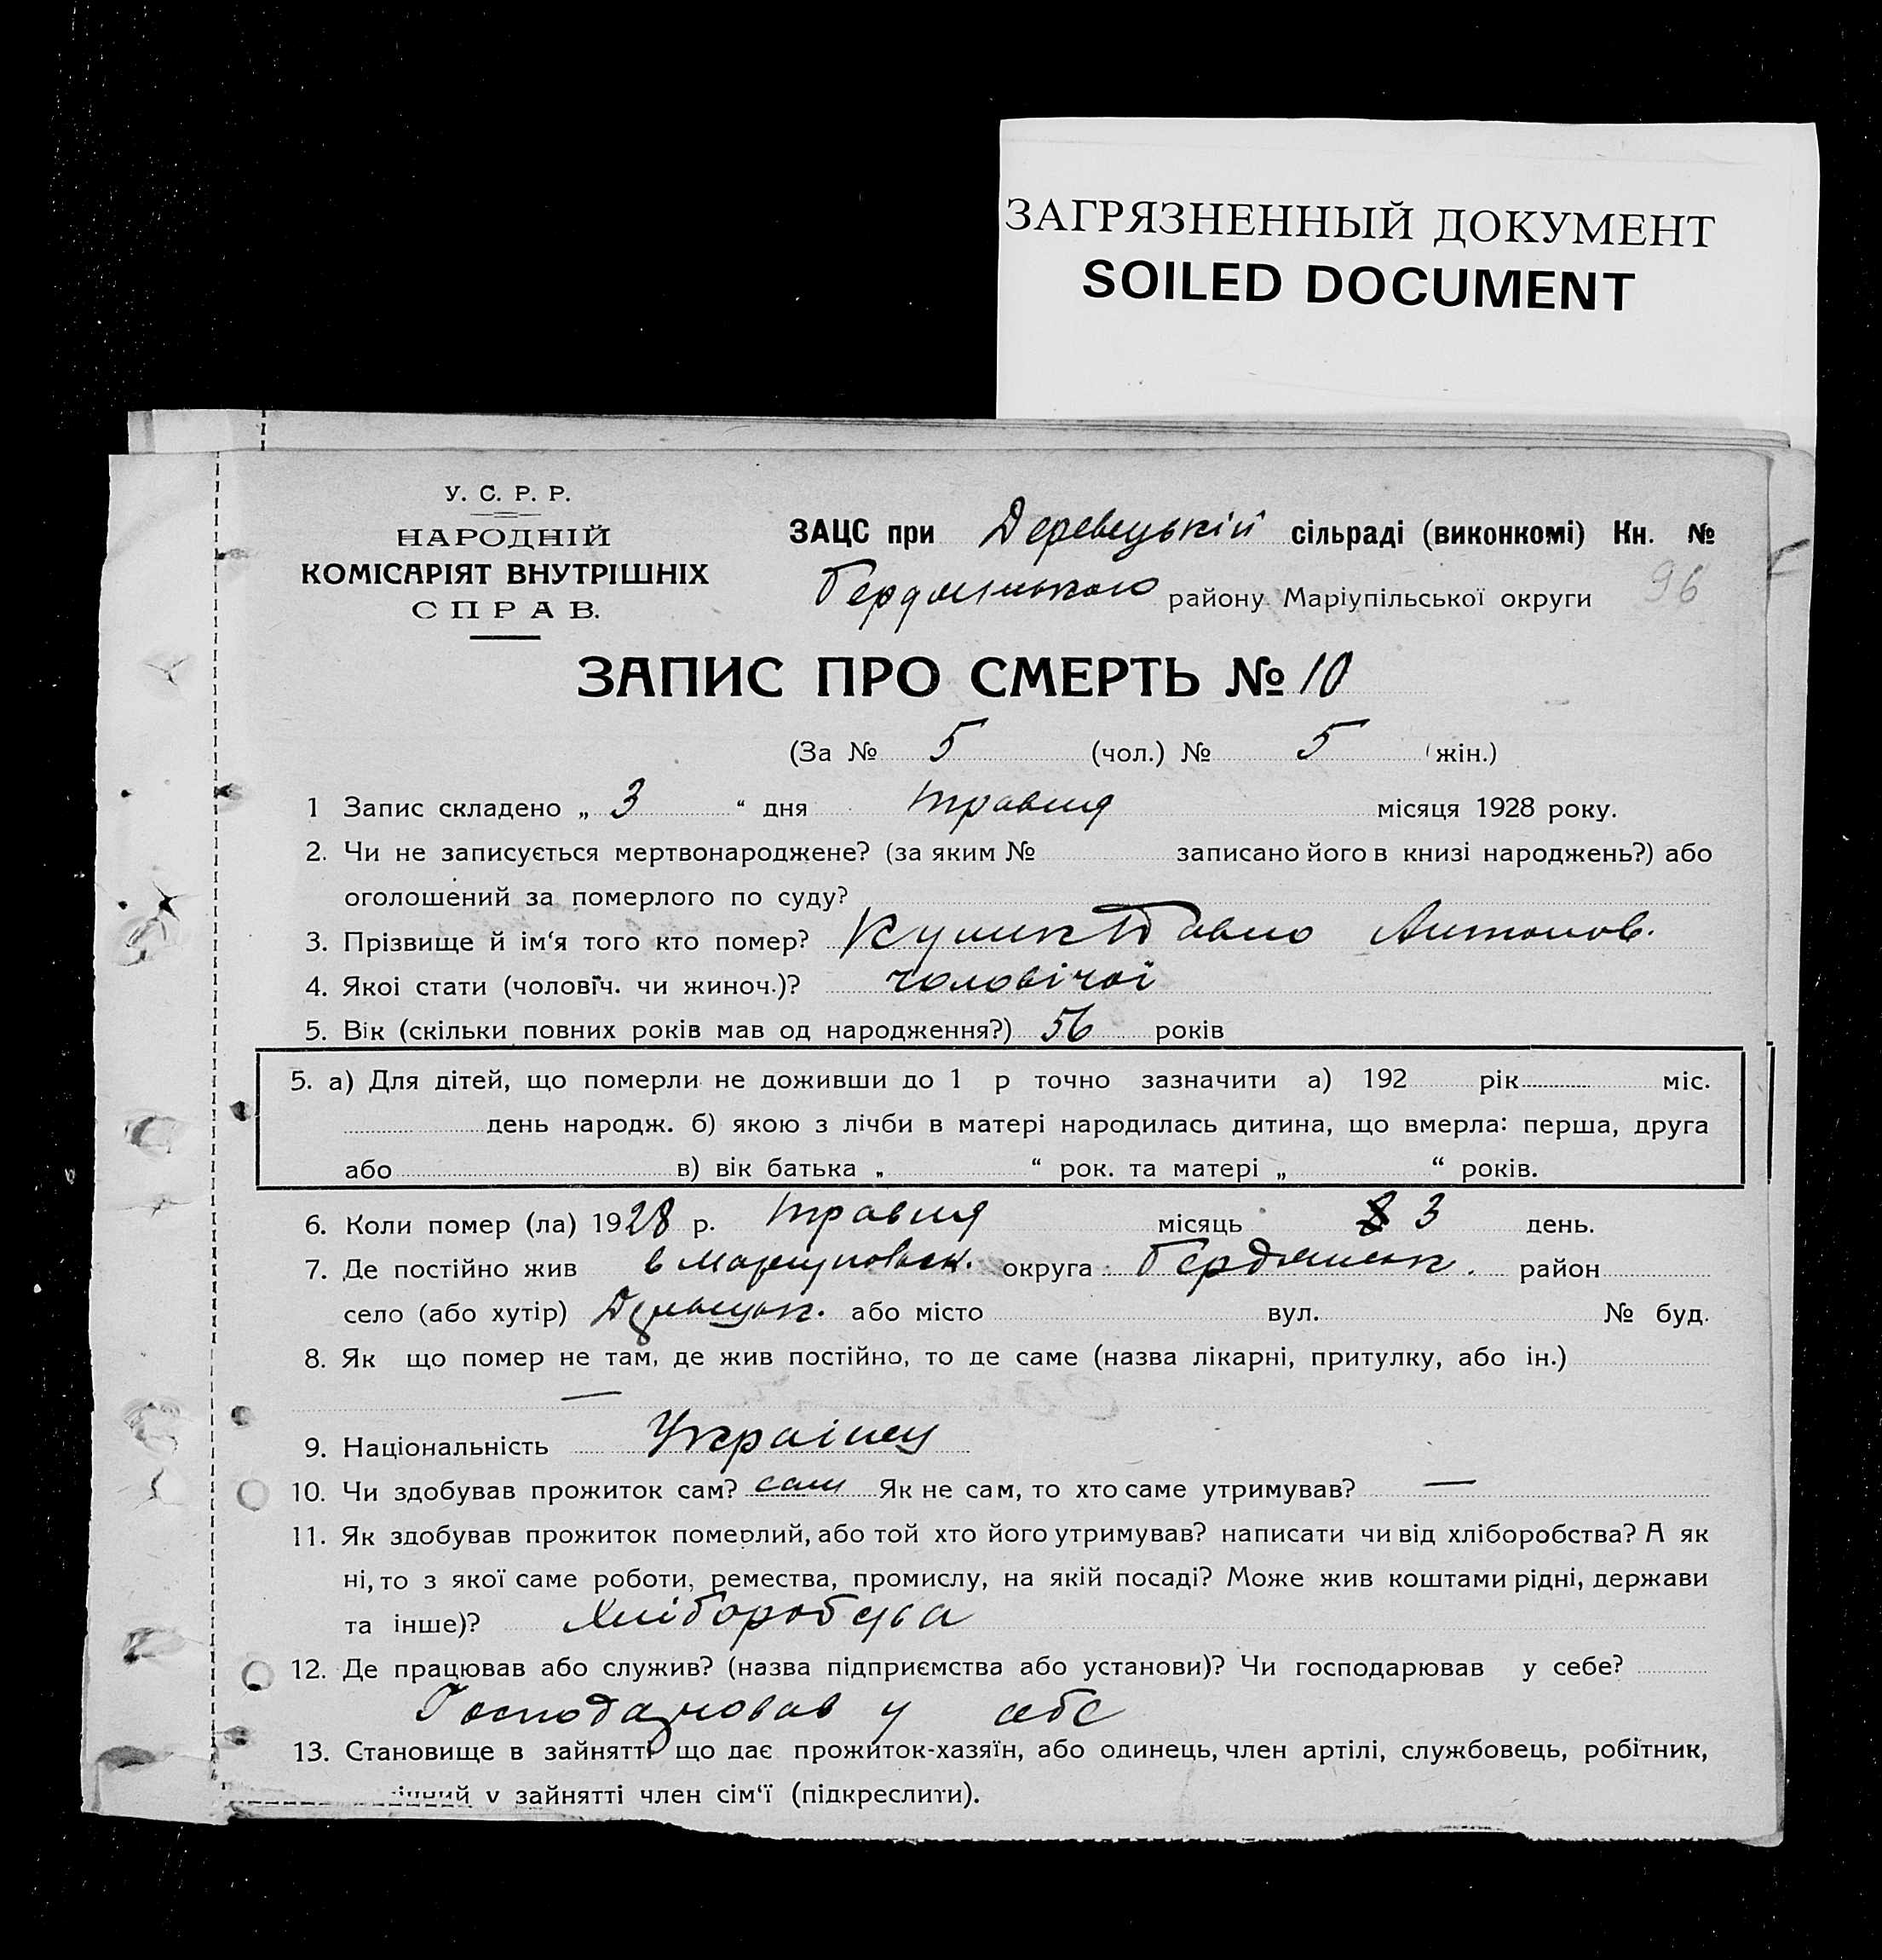 ЗАГРЯЗНЕННЫЙ ДОКУМЕНТ
SOILED DOCUMENT
У. С. Р. Р.
НАРОДНІЙ
КОМІСАРІЯТ ВНУТРІШНІХ
СПРАВ.
ЗАЦС при Деревецькій сільраді (виконкомі) Кн. №
Бердянського району Маріупільської округи 96
ЗАПИС ПРО СМЕРТЬ № 10
(За № 5 (чол.) № 5 (жін.)
1 Запис складено „ 3 “ дня травня місяця 1928 року.
2. Чи не записується мертвонароджене? (за яким № записано його в книзі народжень?) або
оголошений за померлого по суду?
3. Прізвище й ім‘я того кто помер? Кулик Павло Антонов.
4. Якоі стати (чоловїч. чи жиноч.)? чоловічої
5. Вік (скільки повних років мав од народження?) 56 років
5. а) Для дітей, що померли не доживши до 1 р точно зазначити а) 192 рік міс.
день народж. б) якою з лічби в матері народилась дитина, що вмерла: перша, друга
або в) вік батька „ “ рок. та матері „ “ років.
6. Коли помер (ла) 1928 р. травня місяць 3 день.
7. Де постійно жив в Мариуповськ. округа Бердянськ. район
село (або хутір) Деревецьк. або місто вул. № буд.
8. Як що помер не там, де жив постійно, то де саме (назва лікарні, притулку, або ін.)
—
9. Національність Українец
10. Чи здобував прожиток сам? сам Як не сам, то хто саме утримував? —
11. Як здобував прожиток померлий, або той хто його утримував? написати чи від хліборобства? А як
ні, то з якої саме роботи, ремества, промислу, на якій посаді? Може жив коштами рідні, держави
та інше)? Хліборобсва
12. Де працював або служив? (назва підприємства або установи)? Чи господарював у себе?
Господарював у себе
13. Становище в зайнятті що дає прожиток-хазяїн, або одинець, член артілі, службовець, робітник,
у зайнятті член сім‘ї (підкреслити).